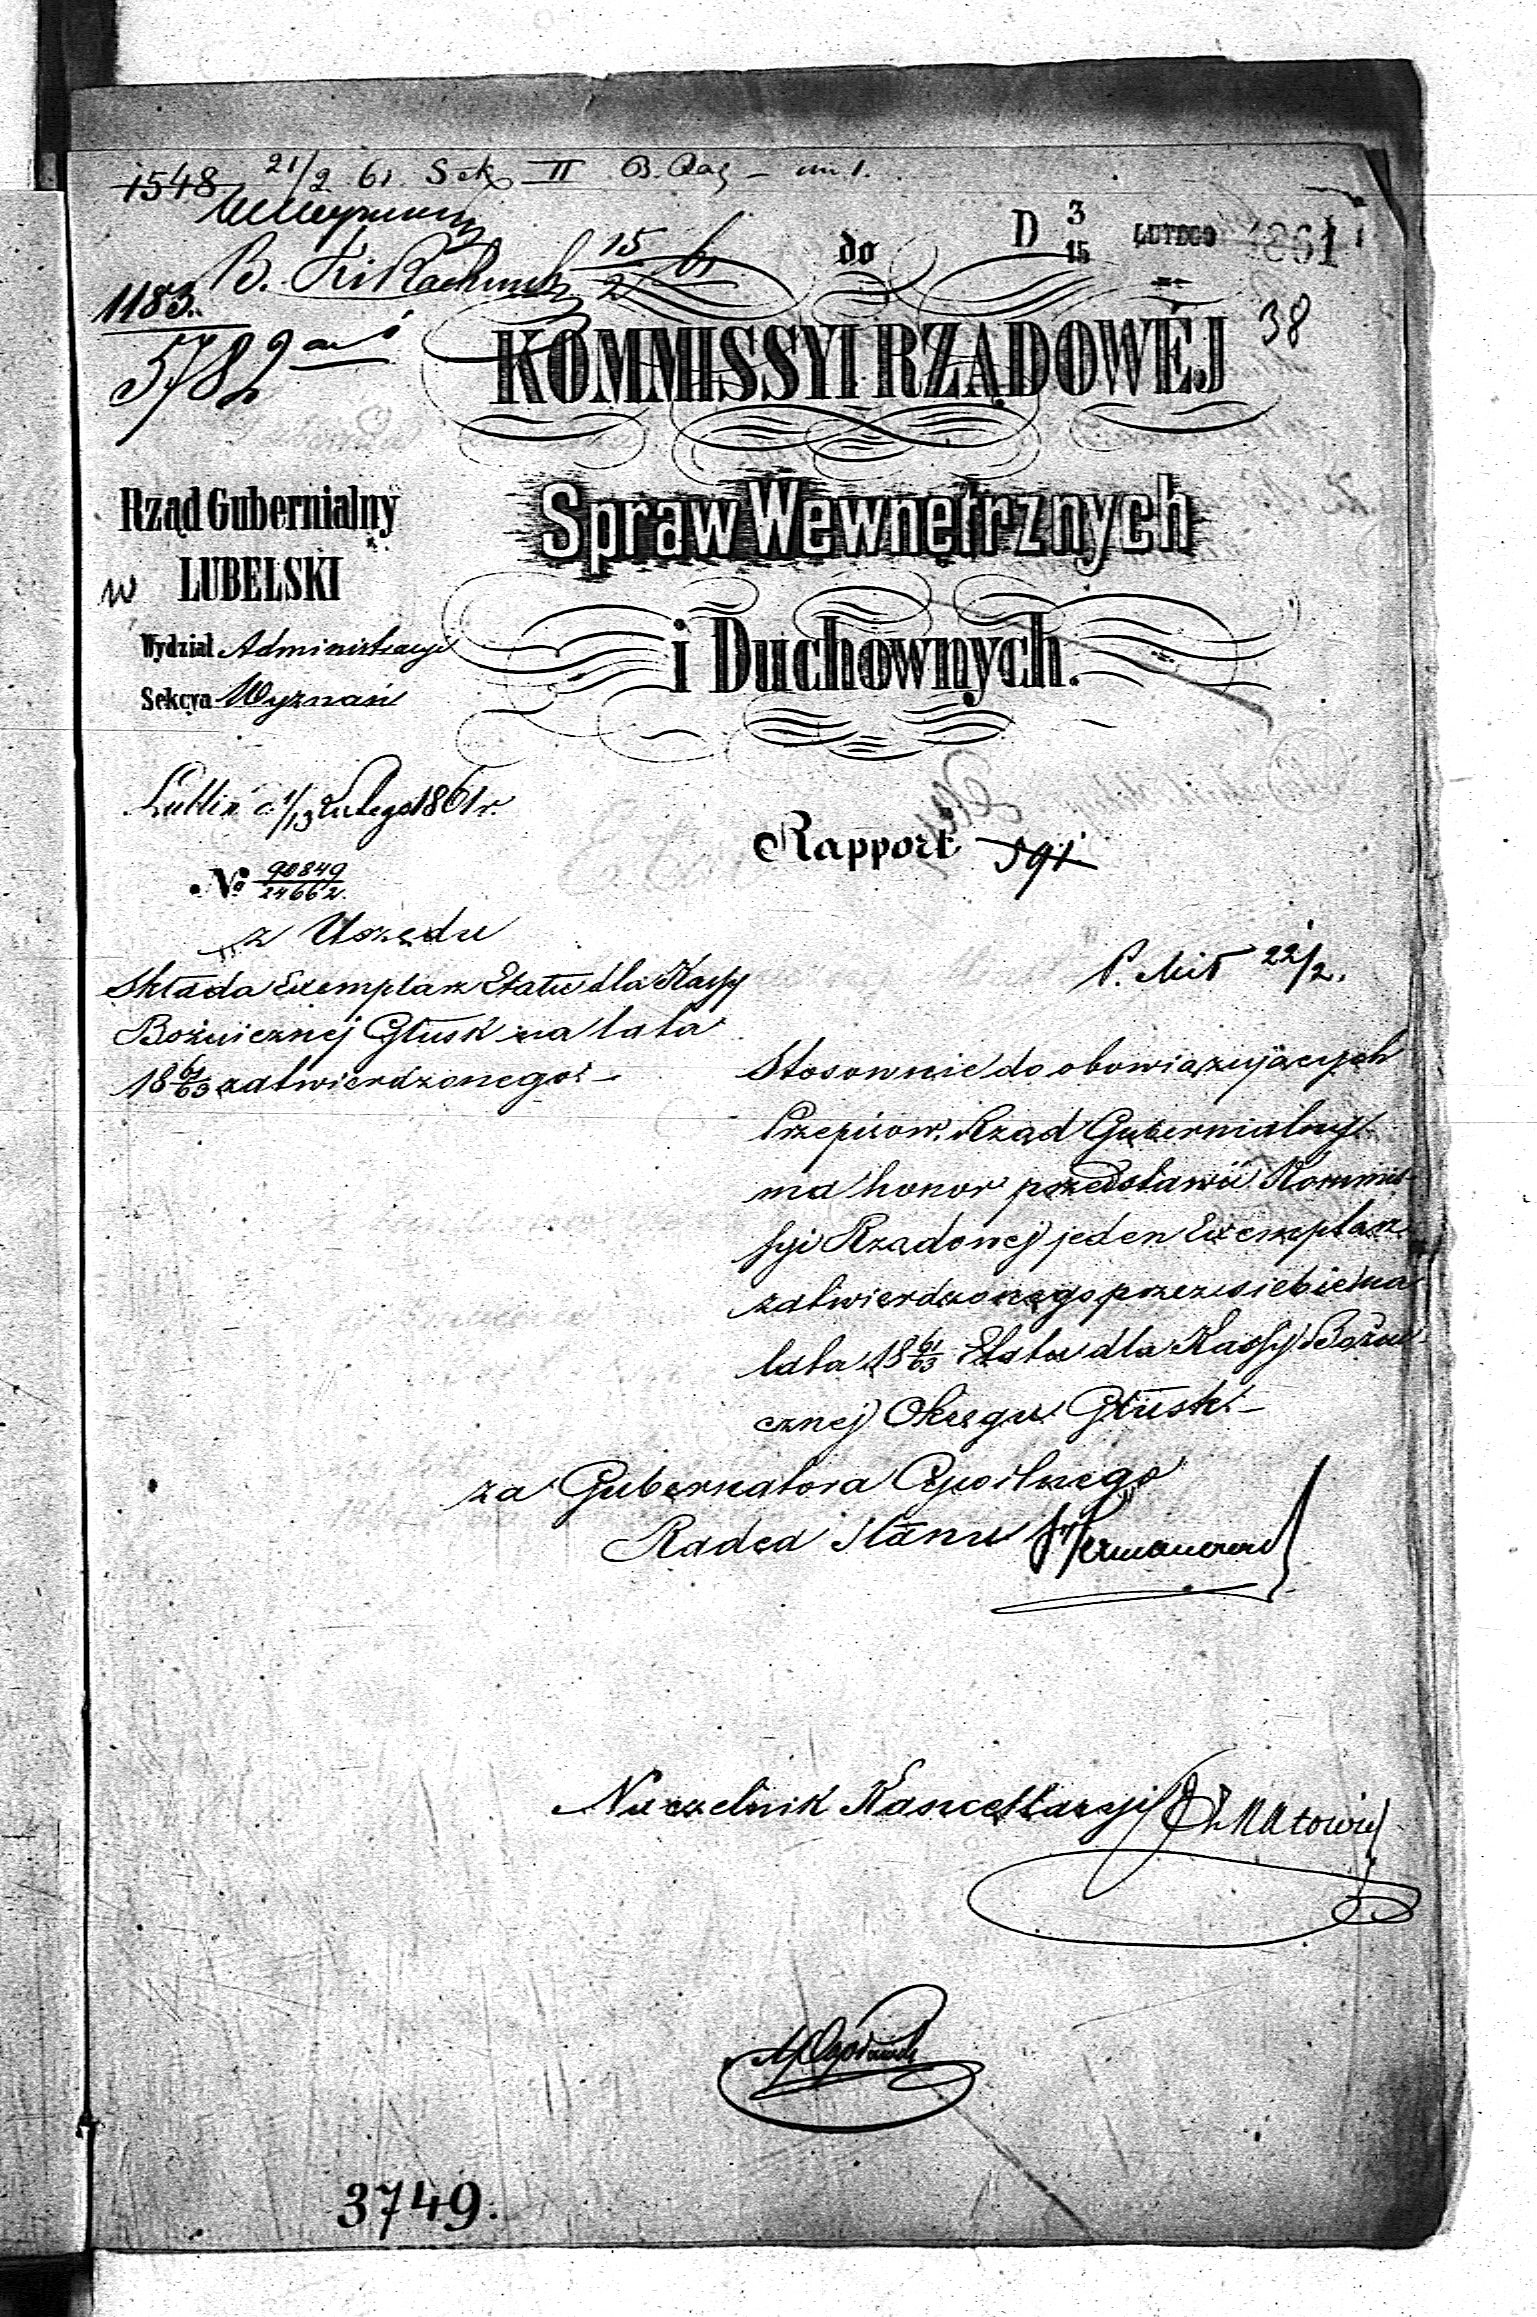 1548 21/2 61. Sek II
B. 15/2 61
1183.
5782
do
D 3/15 LUTEGO 1861
38
KOMMISSYI RZĄDOWÉJ
Spraw Wewnętrznych
i Duchownych.
Rząd Gubernialny
w LUBELSKI
Wydział Administracyi
Sekcya Wyznań
Lublin d 1/13 Lutego 1861 r.
№ 90849/24662.
z Urzędu
Składa Exemplarz Etatu dla Kassy
Bożnicznej Głusk na lata
18 61/63 zatwierdzonego.-
Rapport 591
22/2.
Stosownie do obowiązujących
Przepisow, Rząd Gubernialny
ma honor przedstawić Kommis-
syi Rządowej jeden Exemplarz
zatwierdzonego przez siebie na
lata 18 61/63 Etatu dla Kassy Bożni-
cznej Okręgu Głusk.-
za Gubernatora Cywilnego
Radca Stanu
Naczelnik Kancellaryi
3749.